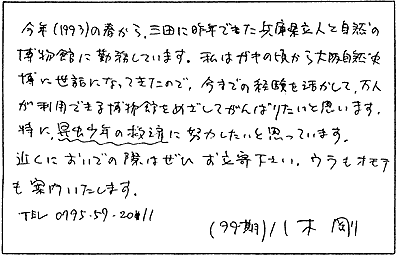 今年(1993)の春から、三田に昨年できた兵庫県立人と自然の
博物館に勤務しています。私はガキの頃から大阪自然史
博に世話になってきたので、今までの経験を活かして、万人
が利用できる博物館をめざしてがんばりたいと思います。
特に、昆虫少年の救済に努力したいと思っています。
近くにおいでの際はぜひお立寄下さい。ウラもオモテ
も案内いたします。
TEL 0795-59-2011
(99期)八木 剛